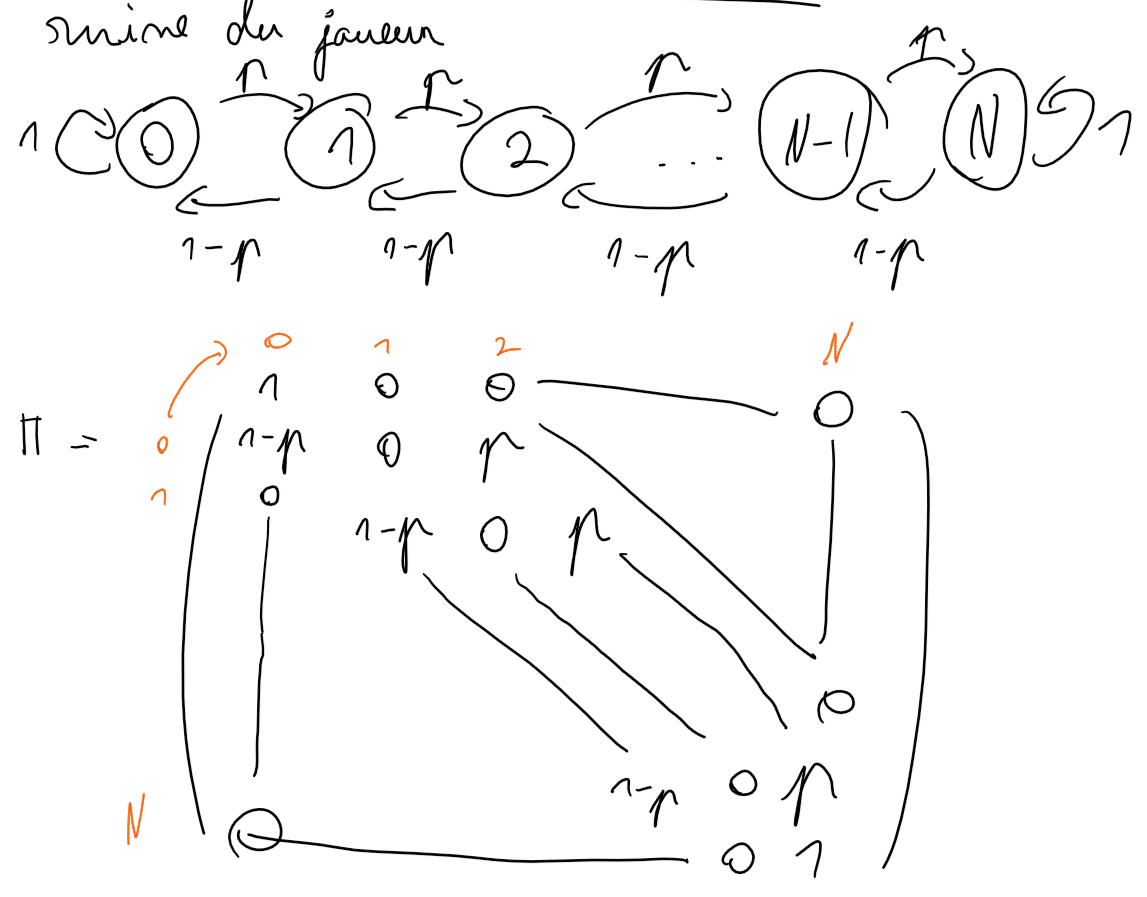 ruine du joueur
p p p p
1 0 1 2 ... N-1 N 1
1-p 1-p 1-p 1-p
0 1 2 N
1 0 0 0
Π = 0 1-p 0 p
1 0
1-p 0 p
0
1-p 0 p
N 0 0 1